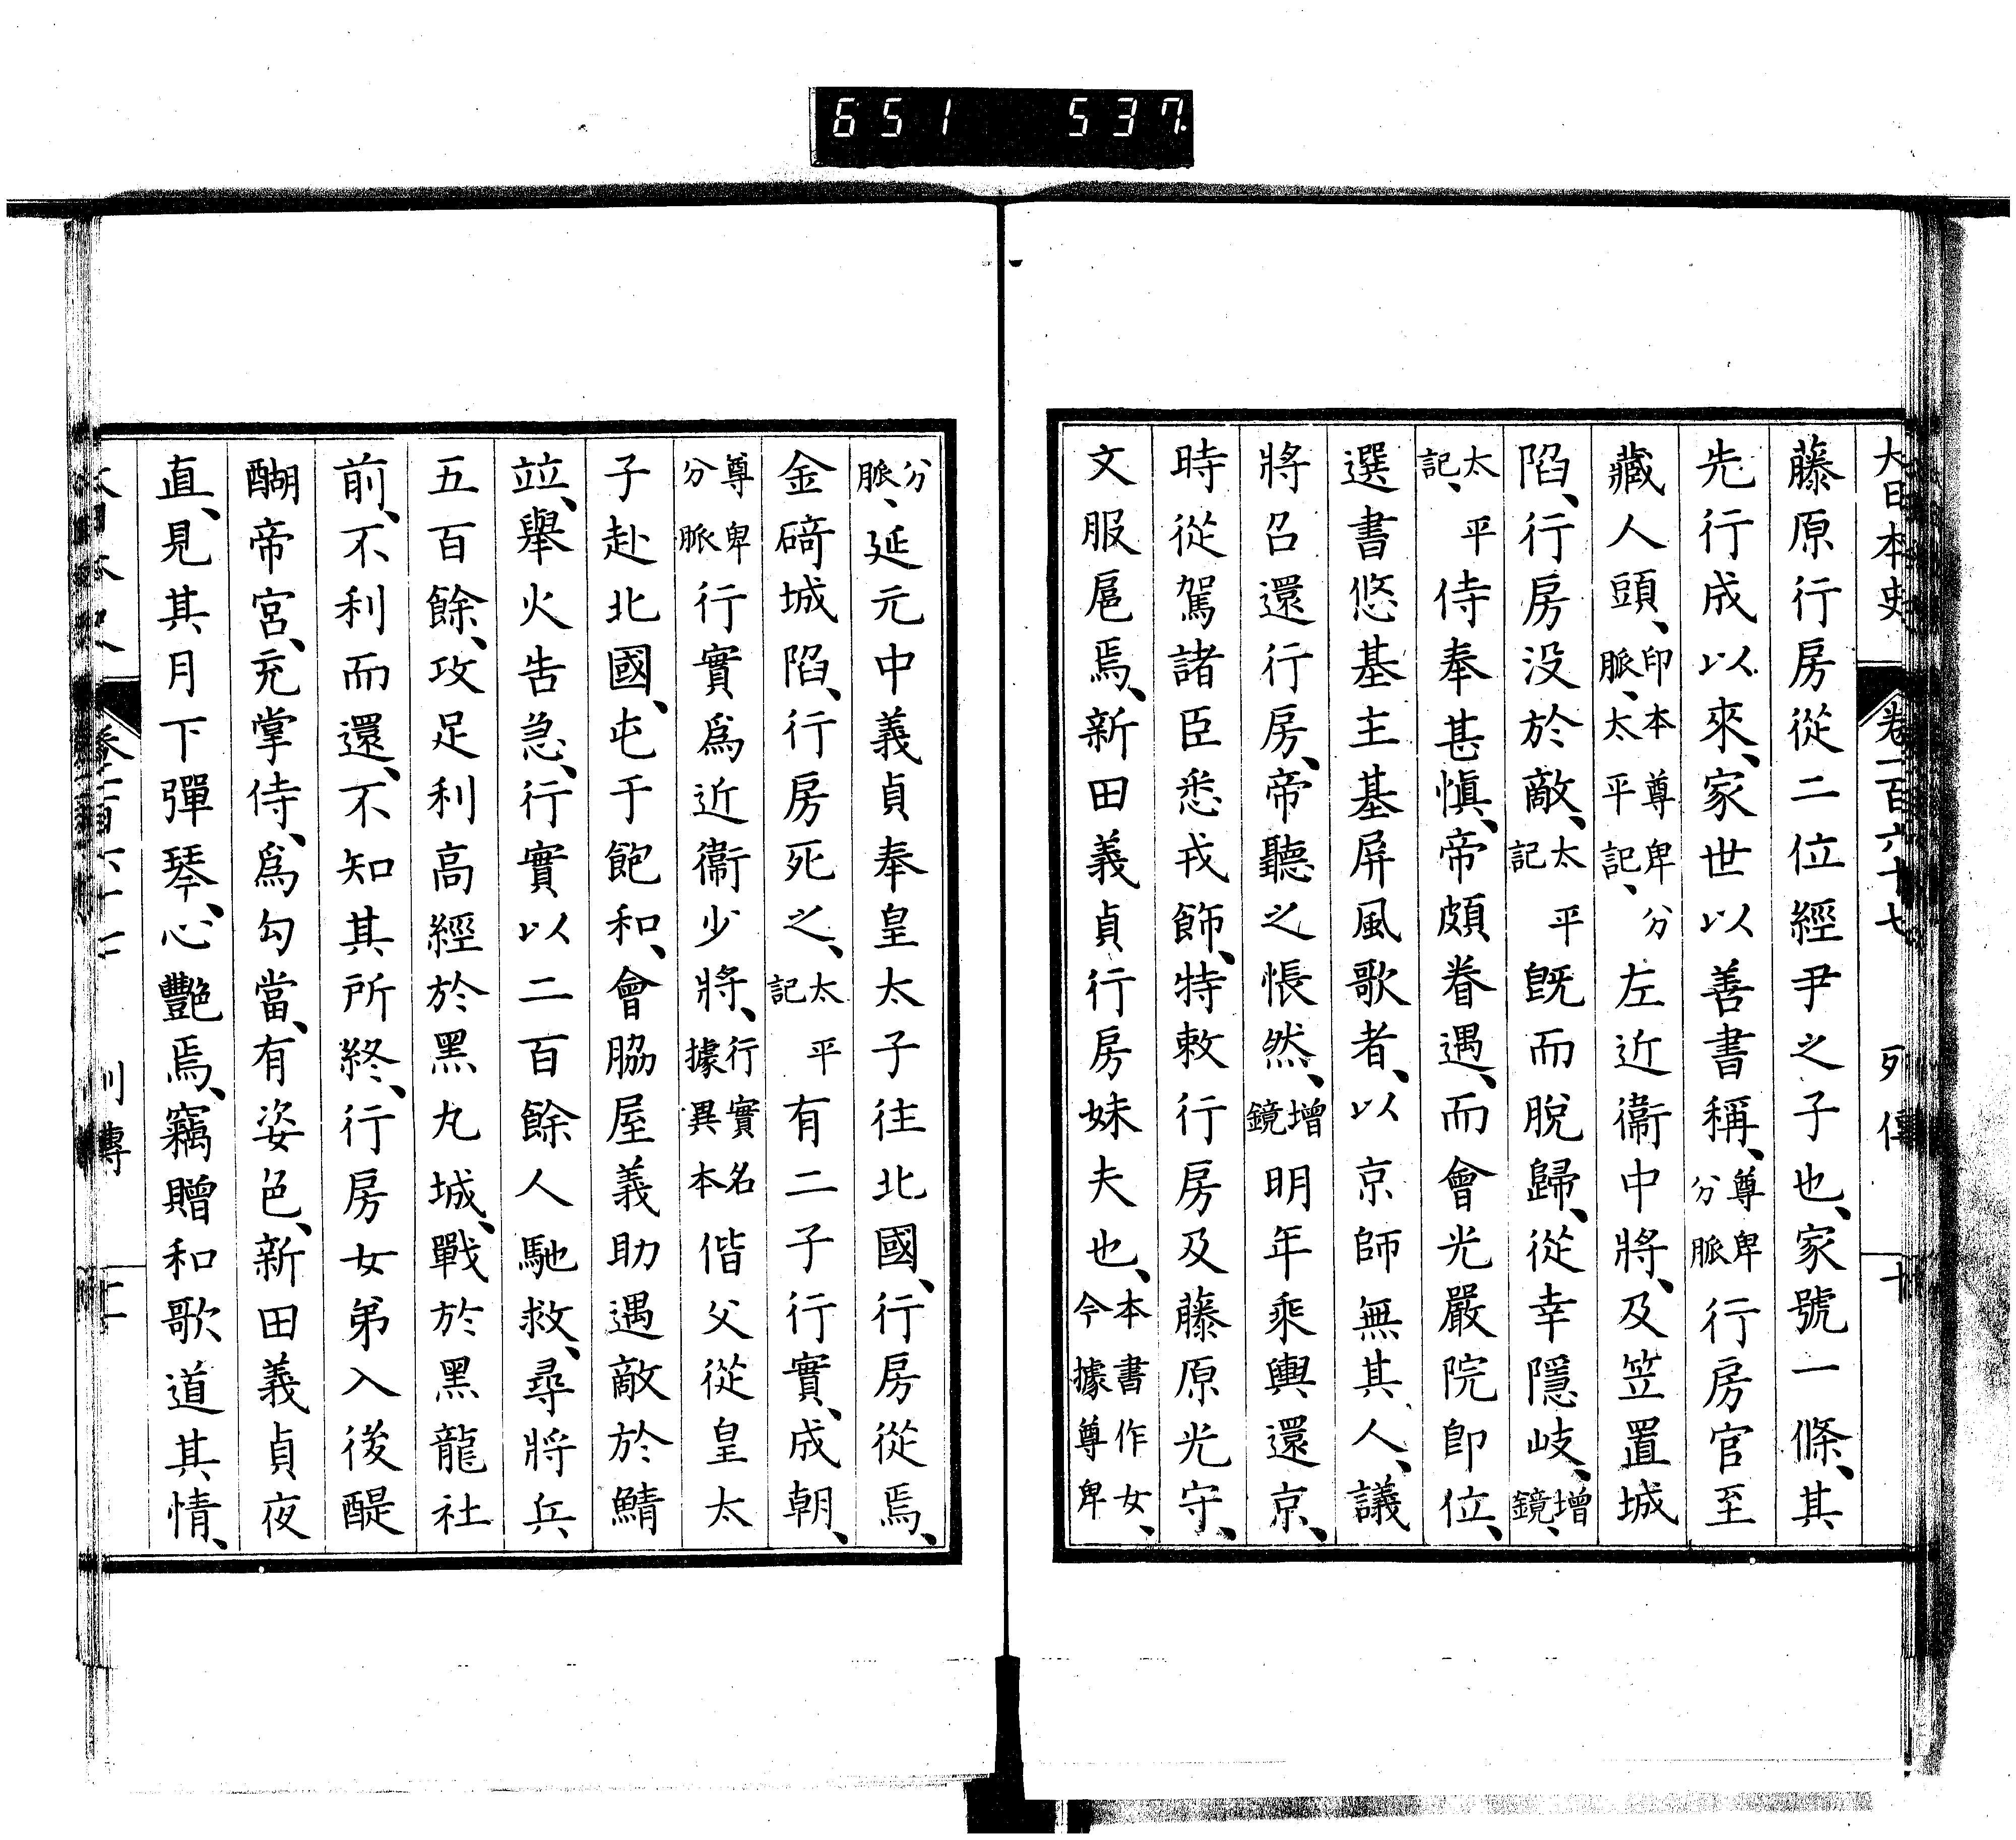 651 537
大日本史 卷一百六十七 列傳 十
藤原行房從二位經尹之子也、家號一條、其
先行成以來、家世以善書稱、尊卑分脈行房官至
藏人頭、印本尊卑分脈、太平記、左近衞中將、及笠置城
陷、行房没於敵、太平記既而脫歸、從幸隱岐、增鏡、
太平記、侍奉甚愼、帝頗眷遇、而會光嚴院卽位、
選書悠基主基屏風歌者、以京師無其人、議
將召還行房、帝聽之悵然、增鏡明年乘輿還京、
時從駕諸臣悉戎飾、特敕行房及藤原光守、
文服扈焉、新田義貞行房妹夫也、本書作女、今據尊卑
分脈、延元中義貞奉皇太子往北國、行房從焉、
金碕城陷、行房死之、太平記有二子行實、成朝、
尊卑分脈行實爲近衞少將、行實名據異本偕父從皇太
子赴北國、屯于飽和、會脇屋義助遇敵於鯖
竝、擧火告急、行實以二百餘人馳救、尋將兵
五百餘、攻足利高經於黑丸城、戰於黑龍社
前、不利而還、不知其所終、行房女弟入後醍
醐帝宮、充掌侍、爲勾當、有姿色、新田義貞夜
直、見其月下彈琴、心艷焉、竊贈和歌道其情、
列傳